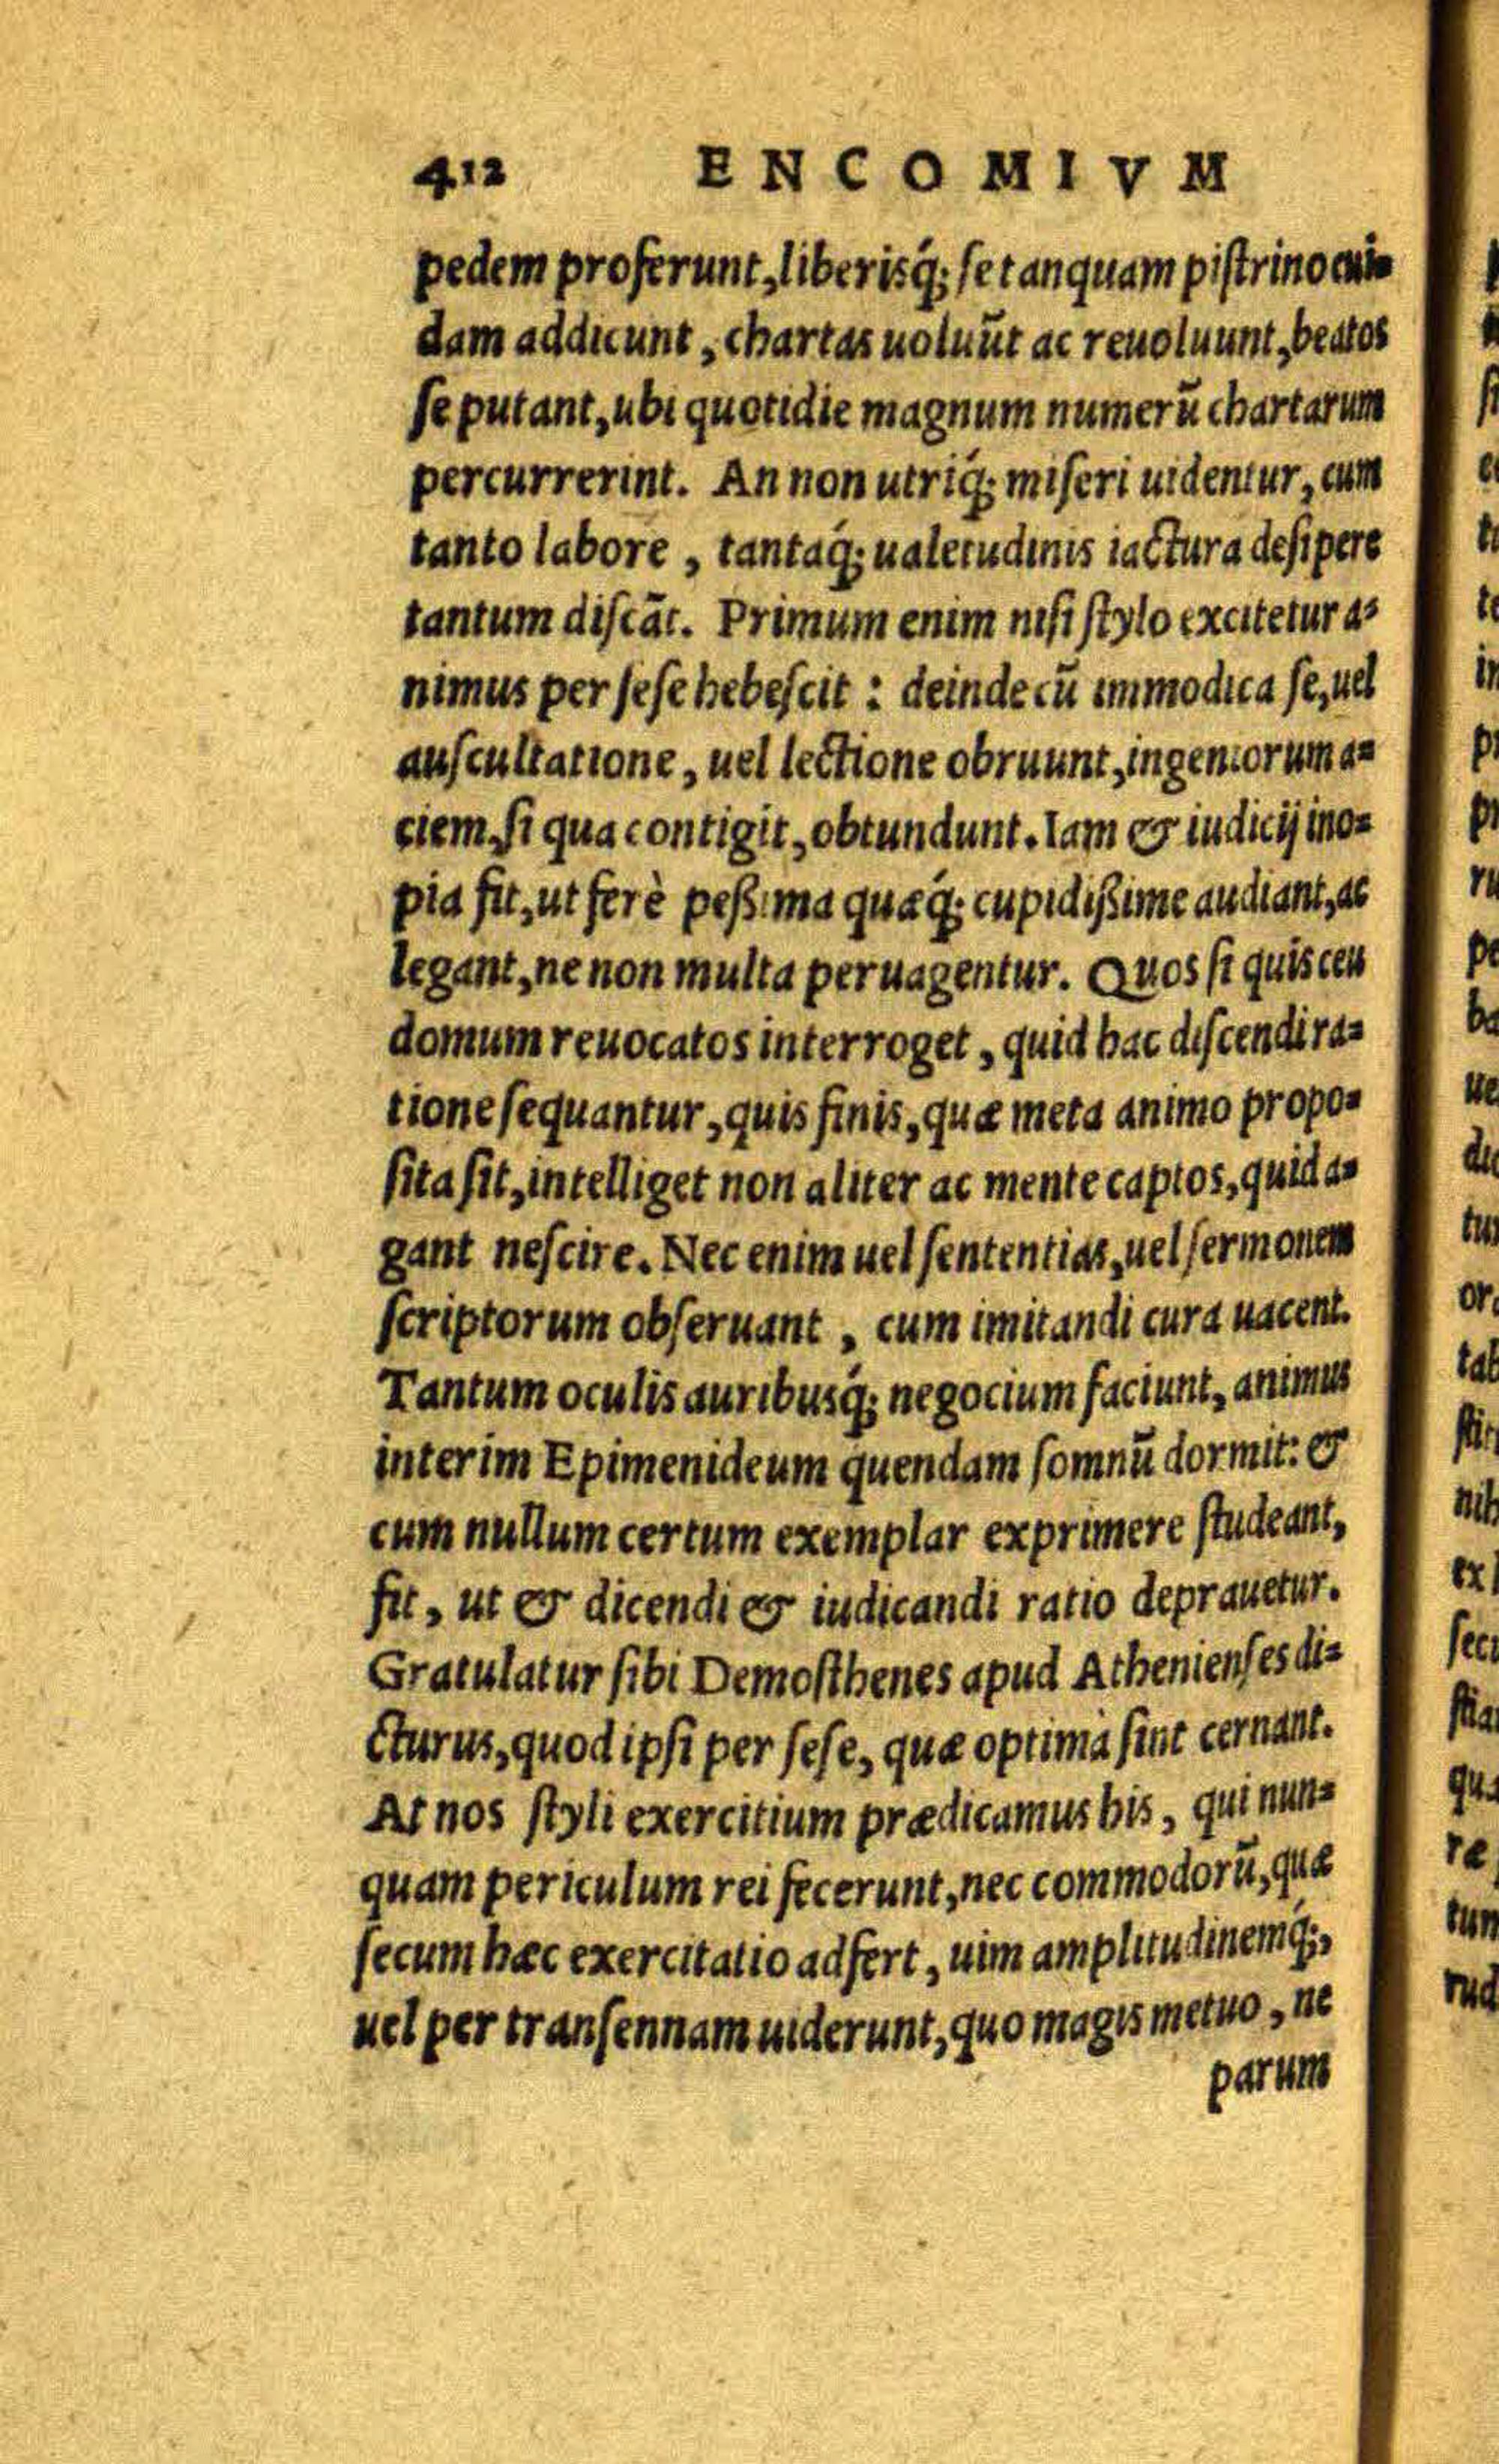 412 ENCOMIVM
pedem proferunt, liberisq́; se tanquam pistrino cui-
dam addicunt, chartas uoluūt ac reuoluunt, beatos
se putant, ubi quotidie magnum numerū chartarum
percurrerint. An non utriq́; miseri uidentur, cum
tanto labore, tantaq́; ualetudinis iactura desipere
tantum discāt. Primum enim nisi stylo excitetur a-
nimus per sese hebescit: deinde cū immodica se, uel
auscultatione, uel lectione obruunt, ingeniorum a-
ciem, si qua contigit, obtundunt. Iam & iudicij ino-
pia fit, ut ferè peßima quæq́; cupidißime audiant, ac
legant, ne non multa peruagentur. Quos si quis ceu
domum reuocatos interroget, quid hac discendi ra-
tione sequantur, quis finis, quæ meta animo propo-
sita sit, intelliget non aliter ac mente captos, quid a-
gant nescire. Nec enim uel sententias, uel sermonem
scriptorum obseruant, cum imitandi cura uacent.
Tantum oculis auribusq́; negocium faciunt, animus
interim Epimenideum quendam somnū dormit: &
cum nullum certum exemplar exprimere studeant,
fit, ut & dicendi & iudicandi ratio deprauetur.
Gratulatur sibi Demosthenes apud Athenienses di-
cturus, quod ipsi per sese, quæ optima sint cernant.
At nos styli exercitium prædicamus his, qui nun-
quam periculum rei fecerunt, nec commodorū, quæ
secum hæc exercitatio adfert, uim amplitudinemq́;,
uel per transennam uiderunt, quo magis metuo, ne
parum